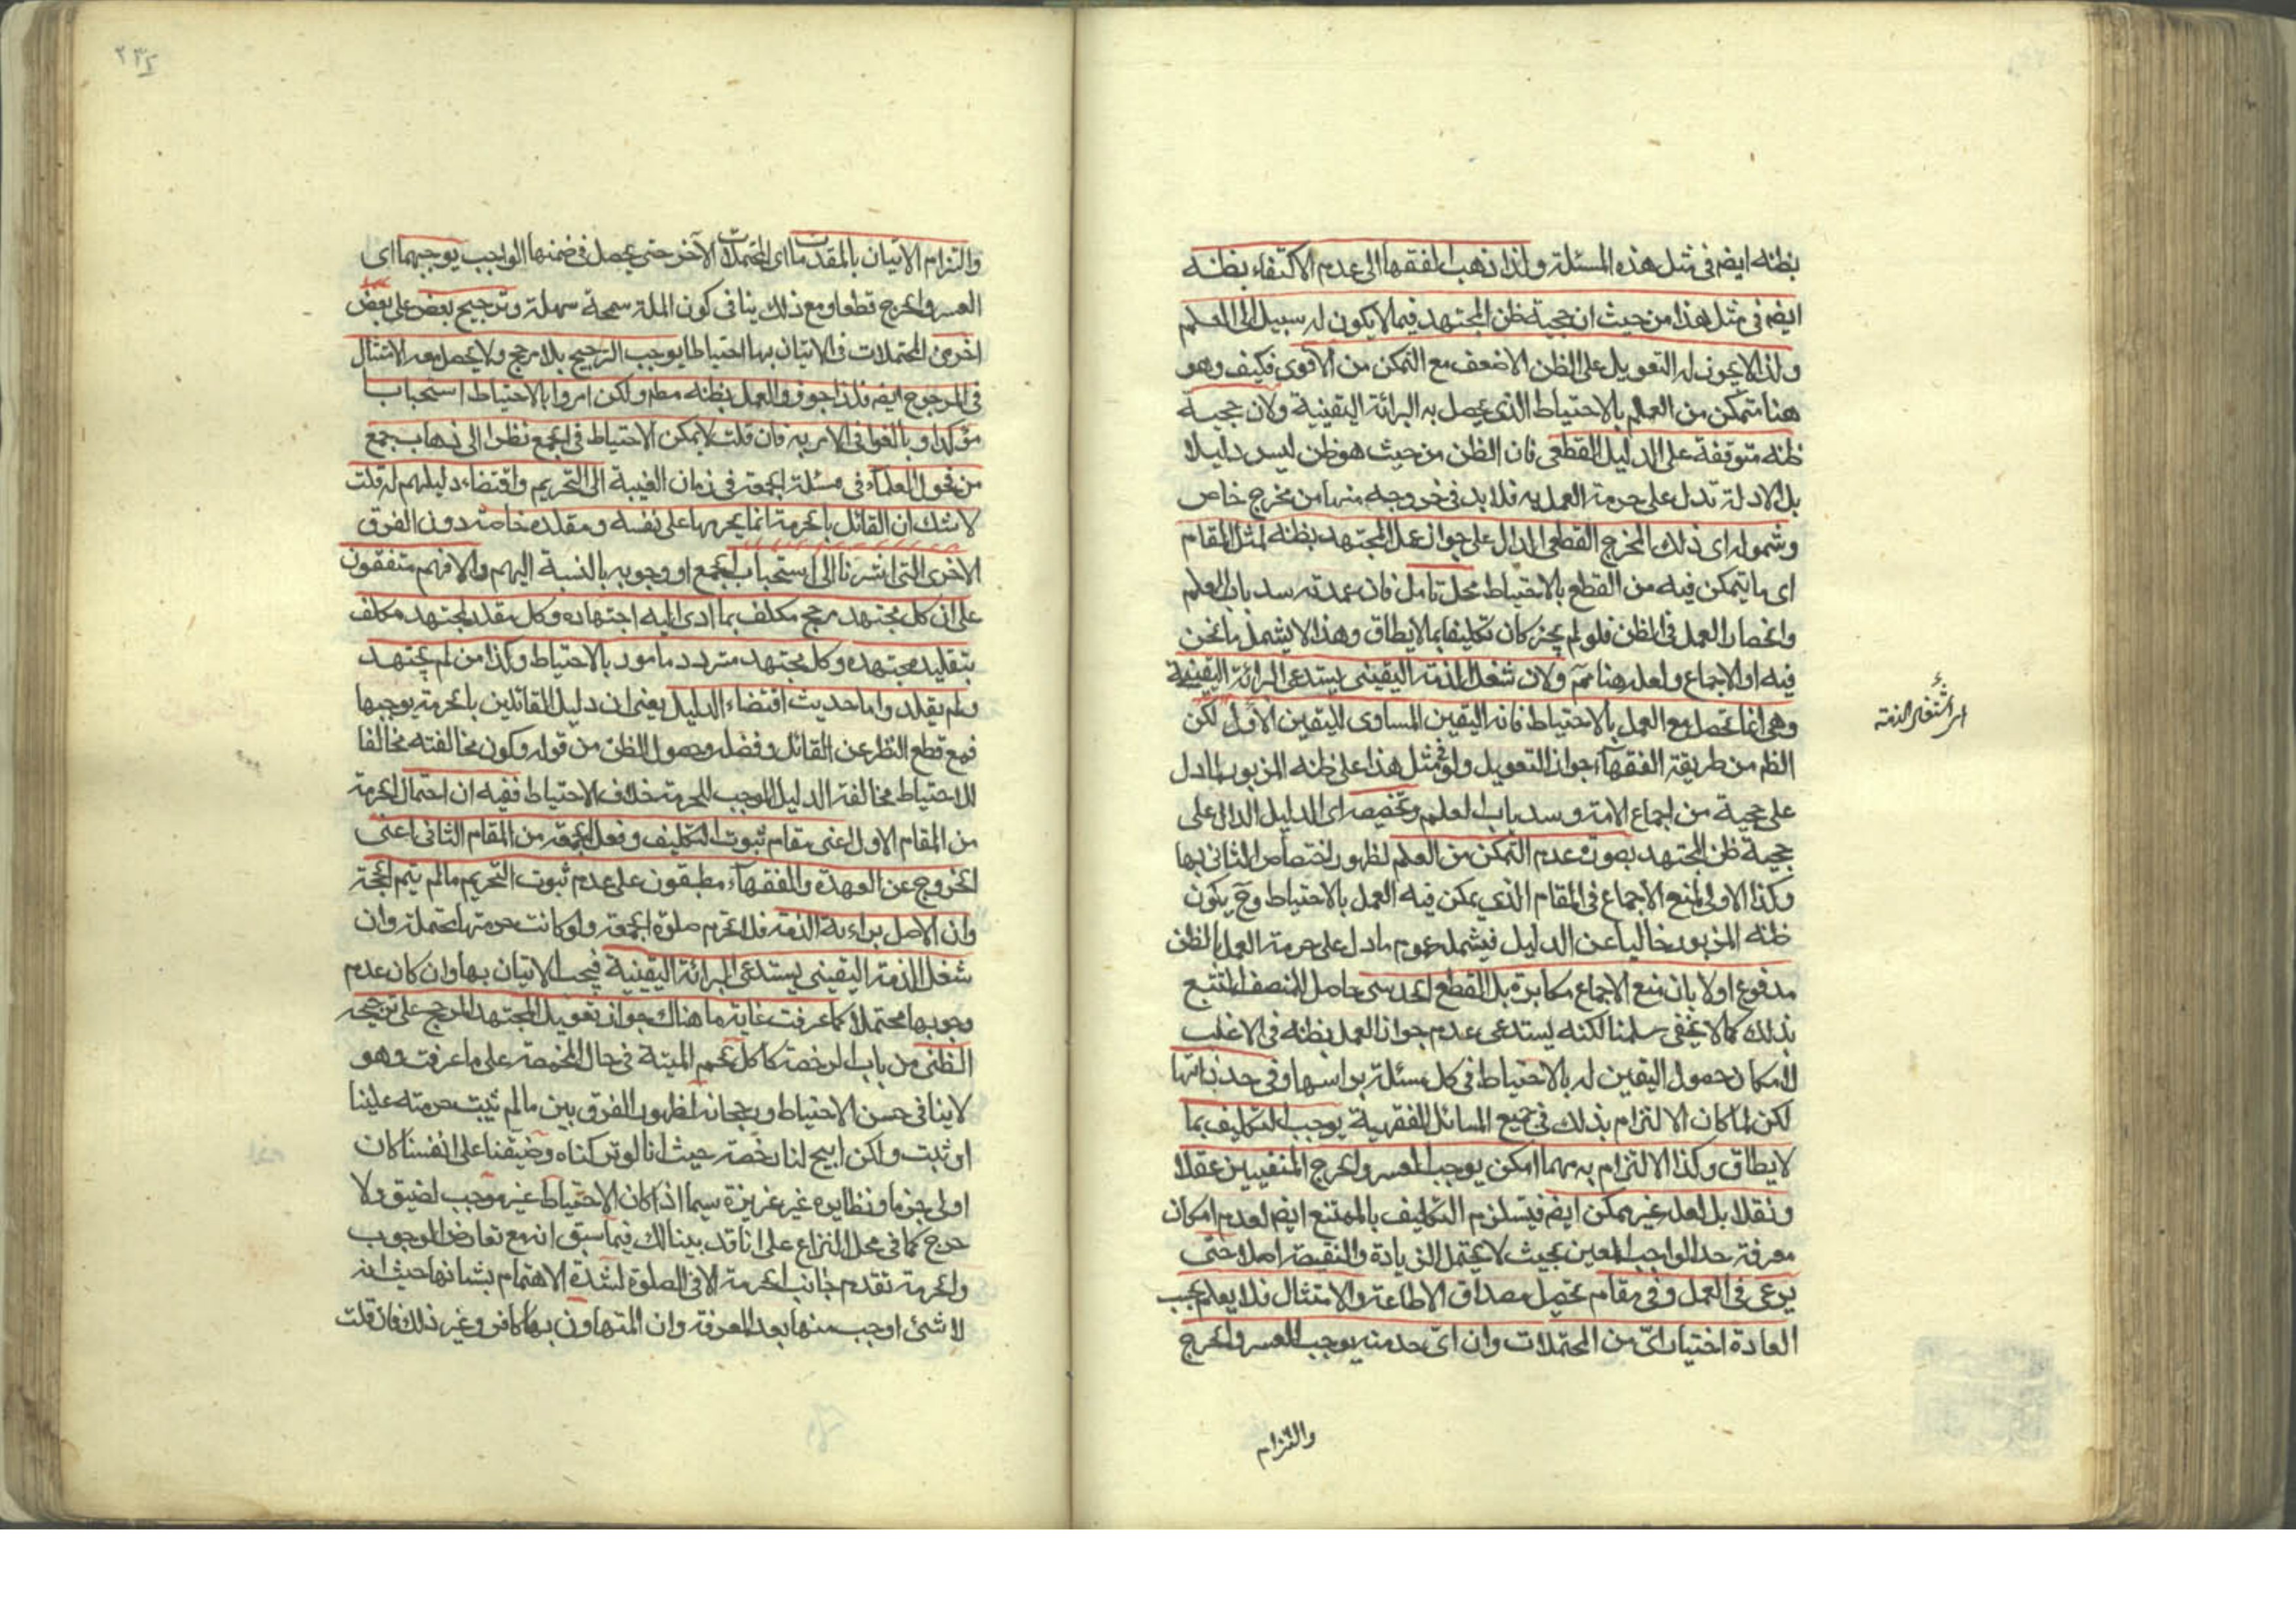 بظنه ايضا فى مثل هذه المسئلة ولذا ذهب الفقهاء الى عدم الاكتفاء بظنه
ايضا فى مثل هذا من حيث ان حجية ظن المجتهد فيما لا يكون له سبيل الى العلم
ولذا لا يجوز له التعويل على الظن الاضعف مع التمكن من الاقوى فكيف وهو
هنا متمكن من العلم بالاحتياط الذى يحصل به البرائة اليقينية ولان حجية
ظنه متوقفة على الدليل القطعى فان الظن من حيث هو ظن ليس دليلا
بل الادلة تدل على حرمة العمل به فلا بد فى خروجه منها من مخرج خاص
وشموله اى ذلك المخرج القطعى الدال على جواز عمل المجتهد بظنه لمثل المقام
اى ما يتمكن فيه من القطع بالاحتياط محل تامل فان عمدته سد باب العلم
وانحصار العمل فى الظن فلو لم يجز كان تكليفا بما لا يطاق وهذا لا يشمل ما نحن
فيه او الاجماع ولعله هنا مم ولان شغل الذمة اليقينى يستدعى البرائة اليقينية
اى اشتغال الذمة
وهى انما تحصل مع العمل بالاحتياط فانه اليقين المساوى لليقين الاول لكن
الظم من طريقة الفقهاء جواز التعويل ولو فى مثل هذا على ظنه المزبور لما دل
على حجية من اجماع الامة وسد باب العلم وتخصيصه اى الدليل الدال على
حجية ظن المجتهد بصورة عدم التمكن من العلم لظهور اختصاص الثانى بها
وكذا الاول لمنع الاجماع فى المقام الذي يمكن فيه العمل بالاحتياط وح يكون
ظنه المزبور خاليا عن الدليل فيشمله عموم ما دل على حرمة العمل بالظن
مدفوع اولا بان منع الاجماع مكابرة بل القطع الحدسى حاصل للمنصف المتتبع
بذلك كما لا يخفى سلمنا لكنه يستدعى عدم جواز العمل بظنه فى الاغلب
لامكان حصول اليقين له بالاحتياط فى كل مسئلة براسها وفى حد ذاتها
لكن لما كان الالتزام بذلك فى جميع المسائل الفقهية يوجب التكليف بما
لا يطاق وكذا الالتزام به مهما امكن يوجب العسر والحرج المنفيين عقلا
ونقلا بل لعله غير ممكن ايضا فيستلزم التكليف بالممتنع ايضا لعدم امكان
معرفة حد الواجب المعين بحيث لا يحتمل الزيادة والنقيصة اصلا حتى
يرعى فى العمل وفى مقام تحصيل مصداق الاطاعة والامتثال فلا يعلم بحسب
العادة اختيار اى من المحتملات وان اى حد منه يوجب العسر والحرج
والتزام
۲۳۵
والتزام الاتيان بالمقدمات اى المحتملات الآخر حتى يحصل فى ضمنها الواجب يوجبهما اى
العسر والحرج قطعا ومع ذلك ينافى كون الملة سمحة سهلة وترجيح بعض على بعض
اخرى المحتملات فى الاتيان بها احتياطا يوجب الترجيح بلا مرجح ولا يحصل معه الامتثال
فى المرجوح ايضا فلذا جوزوا العمل بظنه مطم ولكن امروا بالاحتياط استحبابا
مؤكدا وبالغوا فى الامر به فان قلت لا يمكن الاحتياط فى الجمع نظرا الى ذهاب جمع
من فحول العلماء فى مسئلة الجمعة فى زمان الغيبة الى التحريم واقتضاء دليلهم له قلت
لا شك ان القائل بالحرمة انما يحرمها على نفسه ومقلده خاصة دون الفرق
الاخرى التى اشرنا الى استحباب الجمع او وجوبه بالنسبة اليهم والا فهم متفقون
على ان كل مجتهد مرجح مكلف بما ادى اليه اجتهاده وكل مقلد لمجتهد مكلف
بتقليد مجتهده وكل مجتهد متردد مامور بالاحتياط وكذا من لم يجتهد
ولم يقلد واما حديث اقتضاء الدليل يعنى ان دليل القائلين بالحرمة يوجبها
فمع قطع النظر عن القائل وفضله وحصول الظن من قوله وكون مخالفته مخالفا
للاحتياط مخالفة الدليل الموجب للحرمة خلاف الاحتياط ففيه ان احتمال الحرمة
من المقام الاول اعنى مقام ثبوت التكليف وفعل الجمعة من المقام الثانى اعنى
الخروج عن العهدة والفقهاء مطبقون على عدم ثبوت التحريم ما لم يتم الحجة
وان الاصل براءة الذمة فلا تحرم صلوة الجمعة ولو كانت حرمتها محتملة وان
شغل الذمة اليقينى يستدعى البرائة اليقينية فيجب الاتيان بها وان كان عدم
وجوبها محتملا كما عرفت غاية ما هناك جواز تعويل المجتهد المرجح على ترجيحه
الظنى من باب الرخصة كاكل لحم الميتة فى حال المخمصة على ما عرفت وهو
لا ينافى حسن الاحتياط ورجحانه لظهور الفرق بين ما لم يثبت حرمته علينا
او ثبت ولكن ابيح لنا رخصة حيث انا لو تركناه وضيقنا على انفسنا كان
اولى جزما ونظايره غير عزيزة سيما اذا كان الاحتياط غير موجب لضيق ولا
حرج كما فى محل النزاع على انا قد بينا لك فيما سبق انه مع تعارض الوجوب
والحرمة نقدم جانب الحرمة الا فى الصلوة لشدة الاهتمام بشانها حيث انه
لا شئ اوجب منها بعد المعرفة وان المتهاون بها كافر وغير ذلك فان قلت